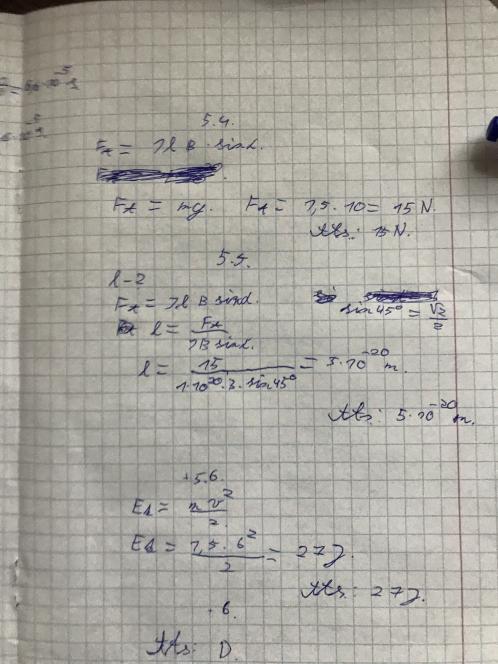 5.4.
F_A = IlB · sinα.
F_A = mg. F_A = 1,5 · 10 = 15 N.
Ats: 15 N.
5.5.
l - ?
F_A = IlB sinα. sin 45° = √2/2
l = F_A / IB sinα.
l = 15 / 1·10²⁰·3·sin45° = 5·10⁻²⁰ m.
Ats: 5·10⁻²⁰ m.
5.6.
E_k = mv² / 2.
E_k = 1,5 · 6² / 2 = 27 J.
Ats: 27 J.
6.
Ats: D.